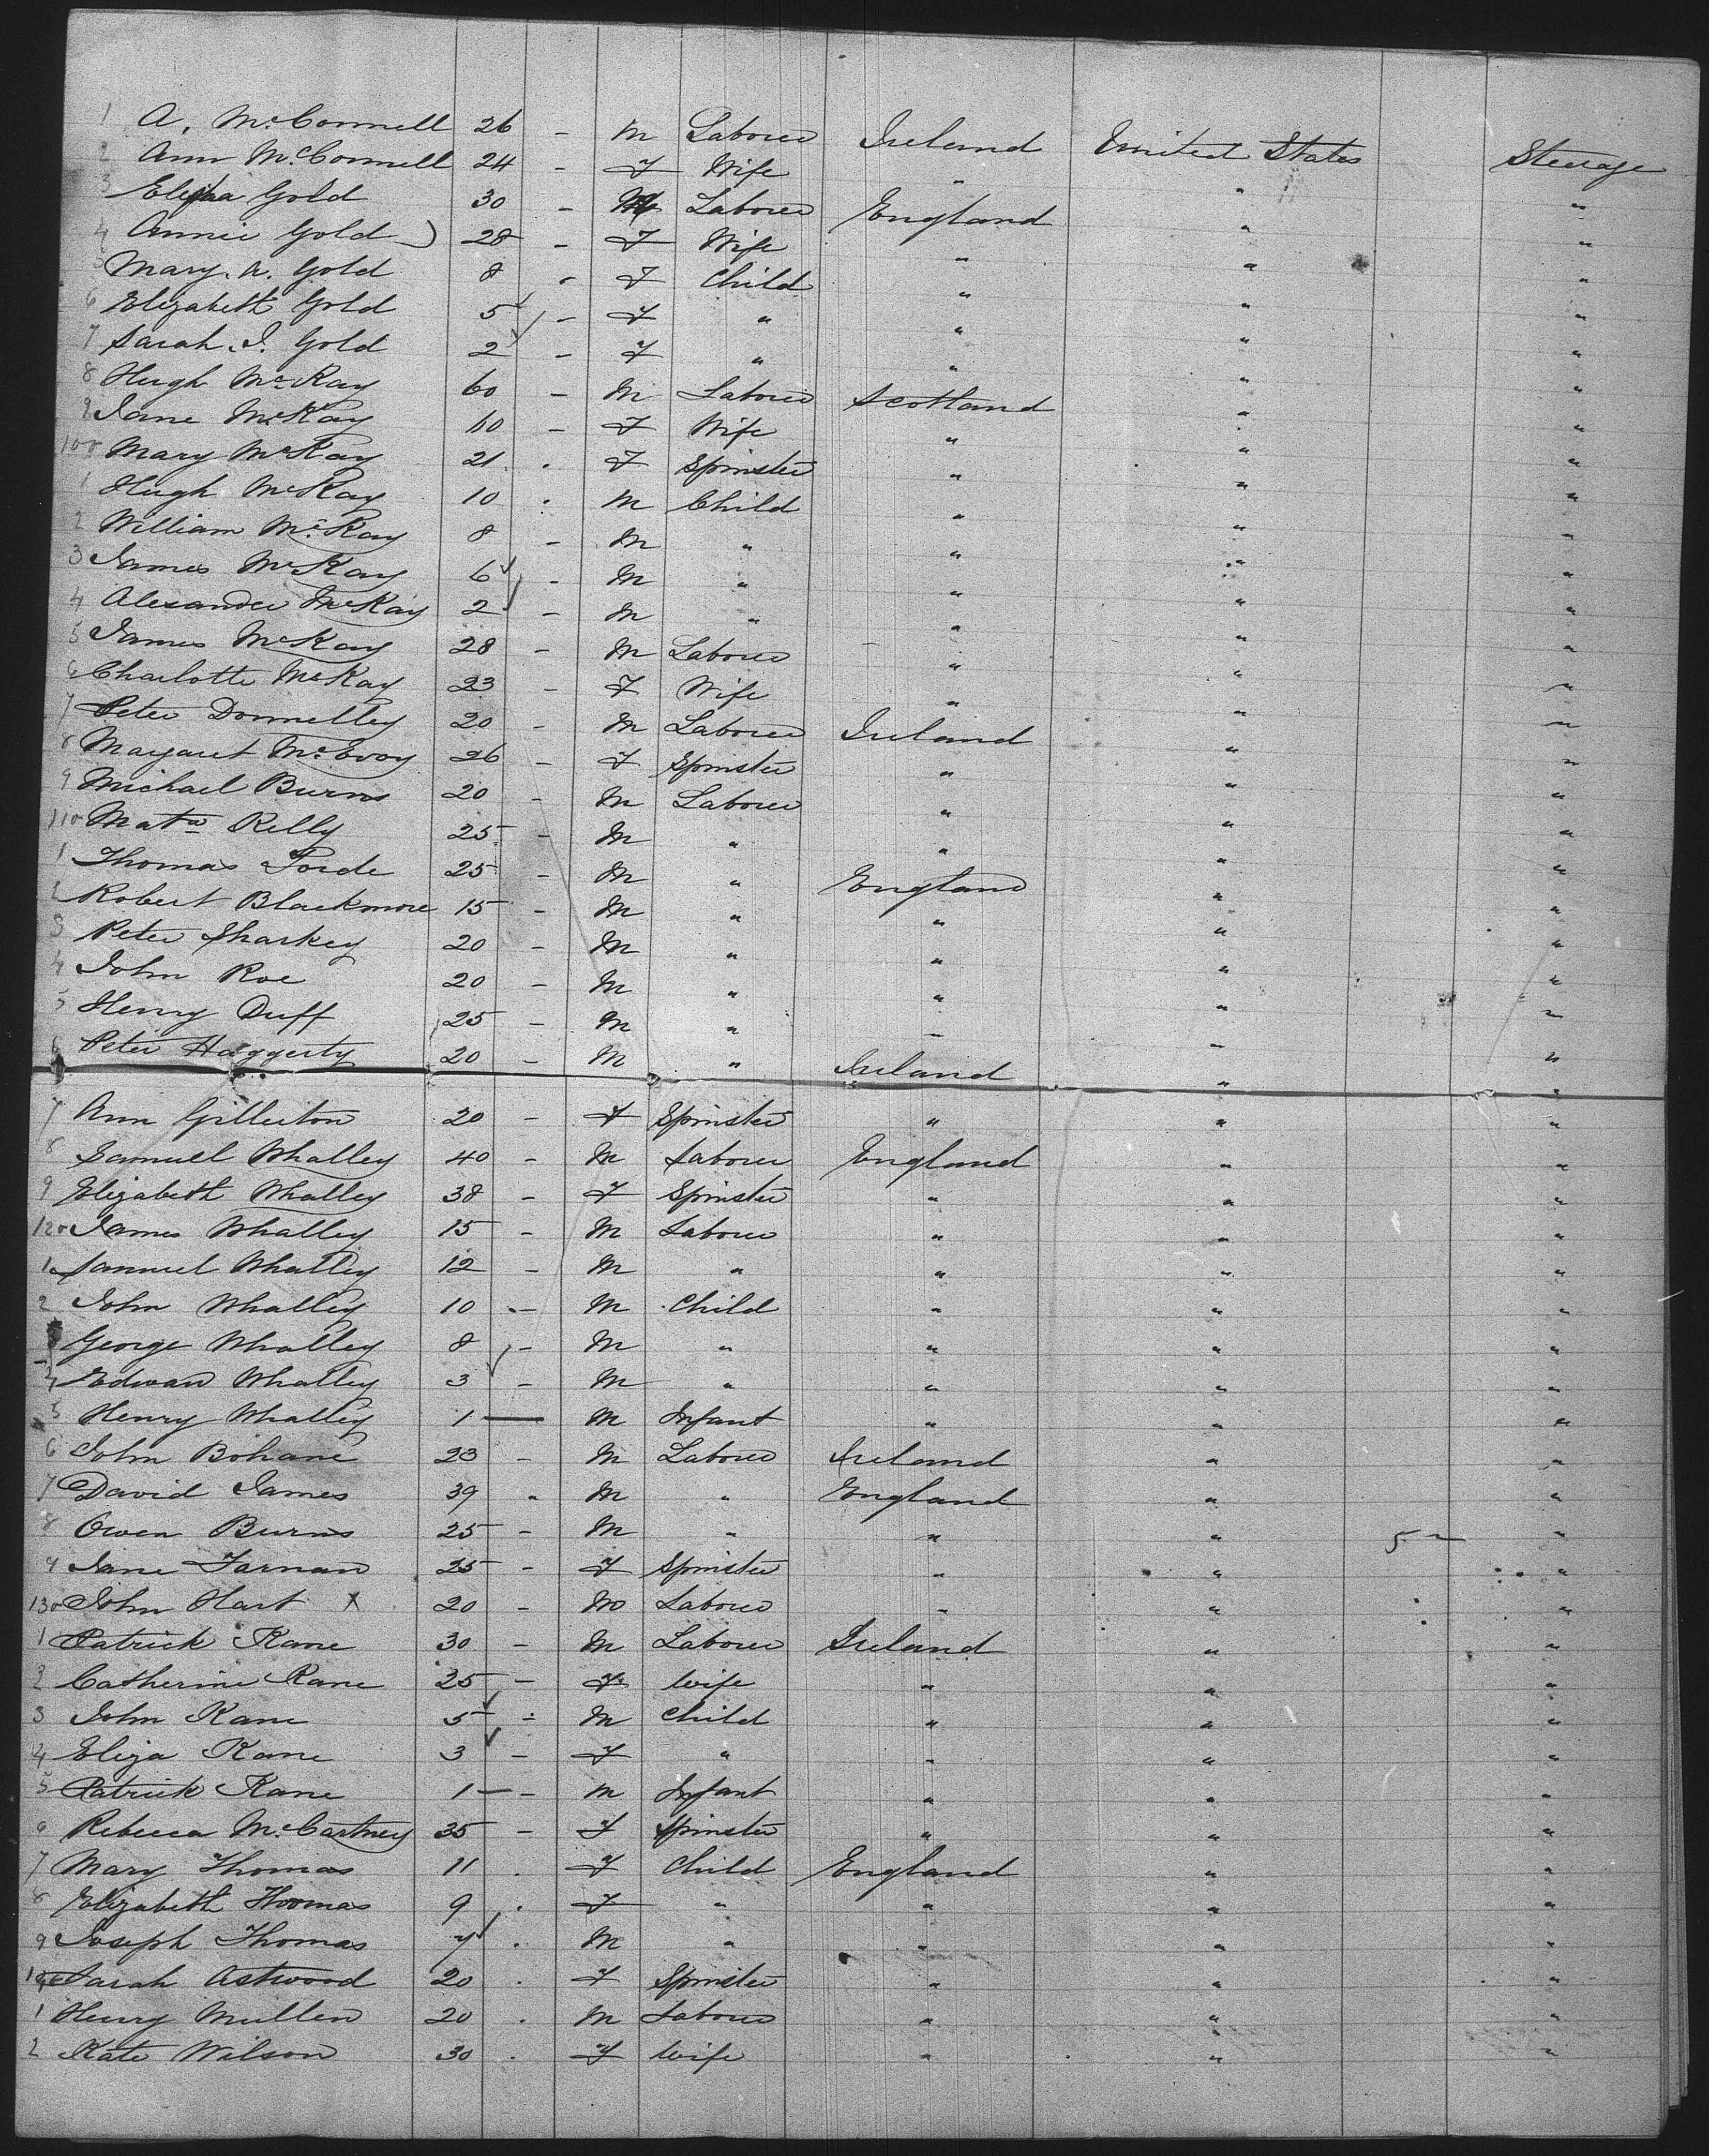 1 A. McConnell 26 - M Laborer Ireland United States Steerage
2 Ann McConnell 24 - F Wife " " "
3 Elijha Gold 30 - M Laborer England " "
4 Annie Gold 28 - F Wife " " "
5 Mary. A. Gold 8 - F Child " " "
6 Elizabeth Gold 5 - F " " " "
7 Sarah. J. Gold 2 - F " " " "
8 Hugh McKay 60 - M Laborer Scotland " "
9 Jane McKay 60 - F Wife " " "
100 Mary McKay 21 - F Spinster " " "
1 Hugh McKay 10 - M Child " " "
2 William McKay 8 - M " " " "
3 James McKay 6 - M " " " "
4 Alexander McKay 2 - M " " " "
5 James McKay 28 - M Laborer " " "
6 Charlotte McKay 23 - F Wife " " "
7 Peter Donnelley 20 - M Laborer Ireland " "
8 Margaret McEvoy 26 - F Spinster " " "
9 Michael Burns 20 - M Laborer " " "
110 Matw Kelly 25 - M " " " "
1 Thomas Forde 25 - M " England " "
2 Robert Blackmore 15 - M " " " "
3 Peter Sharkey 20 - M " " " "
4 John Roe 20 - M " " " "
5 Henry Duff 25 - M " " " "
6 Peter Haggerty 20 - M " Ireland " "
7 Ann Gilleiton 20 - F Spinster " " "
8 Samuel Whalley 40 - M Laborer England " "
9 Elizabeth Whalley 38 - F Spinster " " "
120 James Whalley 15 - M Laborer " " "
1 Samuel Whalley 12 - M " " " "
2 John Whalley 10 - M Child " " "
3 George Whalley 8 - M " " " "
4 Edward Whalley 3 - M " " " "
5 Henry Whalley 1 - M Infant " " "
6 John Bohane 23 - M Laborer Ireland " "
7 David James 39 " M " England " "
8 Owen Burns 25 - M " " " 5 "
9 Jane Farnan 25 - F Spinster " " "
130 John Hart X 20 - M Laborer " " "
1 Patrick Kane 30 - M Laborer Ireland " "
2 Catherine Kane 25 - F Wife " " "
3 John Kane 5 - M Child " " "
4 Eliza Kane 3 - F " " " "
5 Patrick Kane 1 - M Infant " " "
6 Rebecca McCartney 35 - F Spinster " " "
7 Mary Thomas 11 . F Child England " "
8 Elizabeth Thomas 9 . F " " " "
9 Joseph Thomas 7 . M " " " "
140 Sarah Astwood 20 . F Spinster " " "
1 Henry Mullen 20 . M Laborer " " "
2 Kate Wilson 30 . F Wife " " "